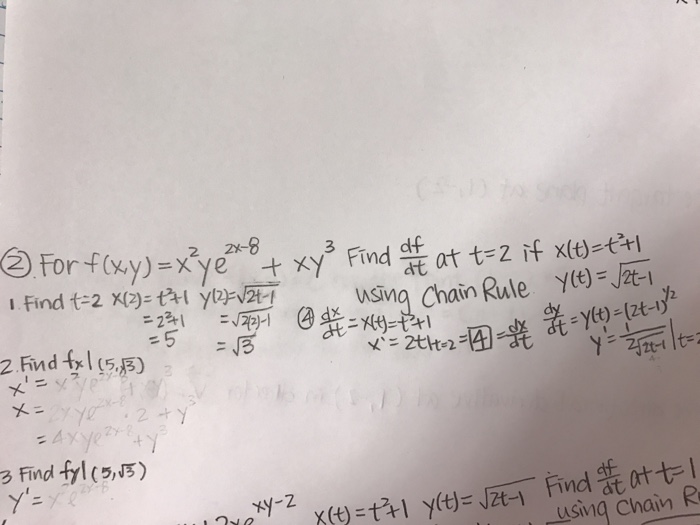 ② For f(x,y)=x²ye^(2x-8) + xy³ Find df/dt at t=2 if x(t)=t²+1
using Chain Rule. y(t)=√(2t-1)
1. Find t=2 x(2)=t²+1 y(2)=√(2t-1)
=2²+1 =√(2(2)-1)
=5 =√3
④ dx/dt=x(t)=t²+1 dy/dt=y(t)=(2t-1)^(1/2)
x'=2t|t=2=4=dx/dt y'=1/(2√(2t-1))|t=2
2. Find fx|(5,√3)
x'=x²ye^(2x-8)
x= 2xye^(2x-8)·2+y³
=4xye^(2x-8)+y³
3 Find fy|(5,√3)
y'=x²e^(2x-8)
xy-2 x(t)=t²+1 y(t)=√(2t-1) Find df/dt at t=1
using Chain